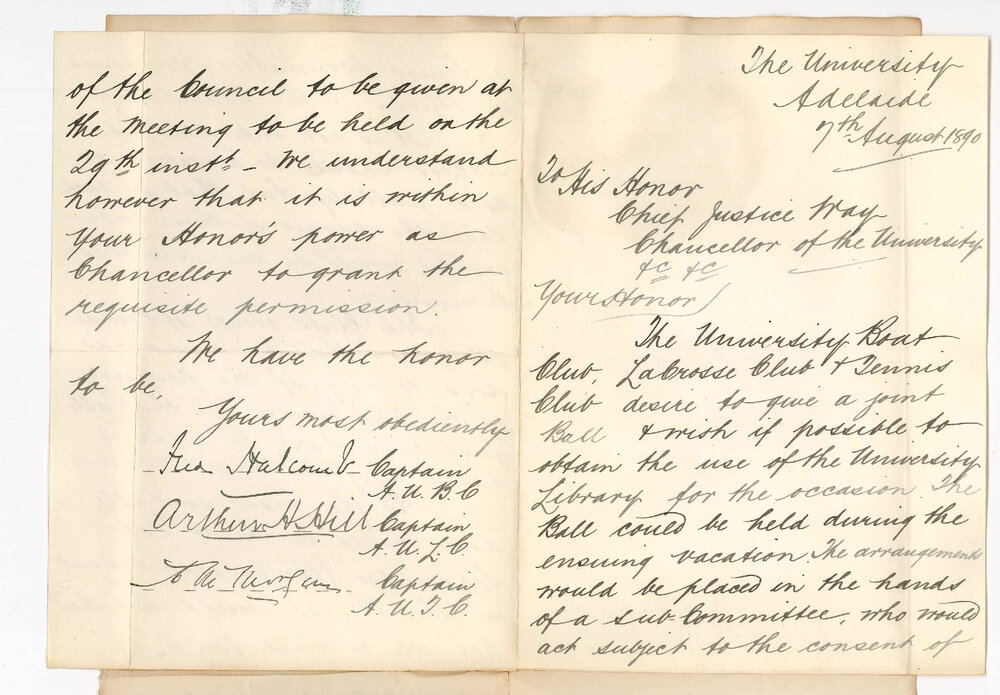 The University
Adelaide
7th August 1890
To His Honor
Chief Justice Way
Chancellor of the University
&c &c
Your Honor)
The University Boat
Club, LaCrosse Club & Tennis
Club desire to give a joint
Ball & wish if possible to
obtain the use of the University
Library for the occasion. The
Ball could be held during the
ensuing vacation. The arrangements
would be placed in the hands
of a sub-Committee, who would
act subject to the consent of
of the Council to be given at
the meeting to be held on the
29th instt. – We understand
however that it is within
Your Honor's power as
Chancellor to grant the
requisite permission.
We have the honor
to be,
Yours most obediently
Halcomb Captain
A.U.B.C
Arthur H. Hill Captain
A.U.L.C.
Morgan Captain
A.U.T.C.